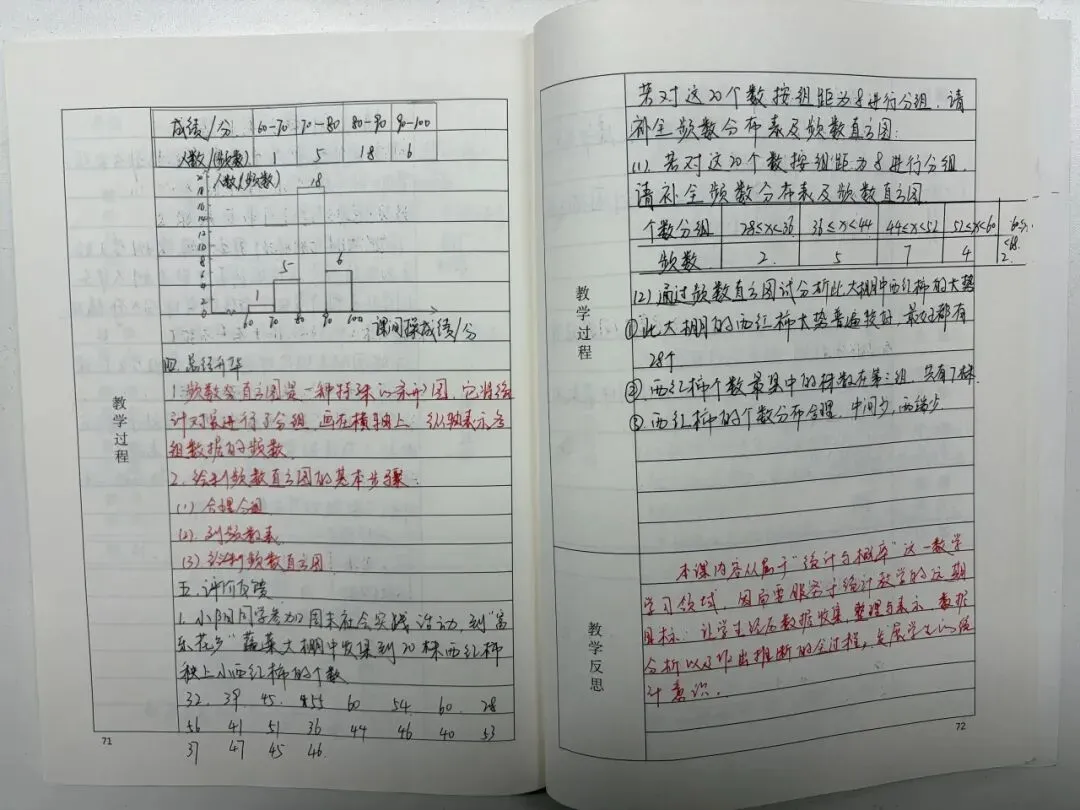 成绩/分 60-70 70-80 80-90 90-100
人数(频数) 1 5 18 6
人数(频数)
18
16
14
12
10
8
6
4
2
0
1 5 18 6
60 70 80 90 100
课间操成绩/分
四、总结升华
1.频数直方图是一种特殊的条形图,它将统
计对象进行了分组,画在横轴上,纵轴表示各
组数据的频数.
2.绘制频数直方图的基本步骤:
(1)合理分组
(2)列频数表
(3)绘制频数直方图
五、评价反馈
1.小阳同学参加周末社会实践活动,到"富
乐花乡"蔬菜大棚中收集到20株西红柿
秧上小西红柿的个数
32 39 45 55 60 54 60 28
56 41 51 36 44 46 40 53
37 47 45 46
教学过程
71
若对这20个数按组距为8进行分组,请
补全频数分布表及频数直方图:
(1)若对这20个数按组距为8进行分组,
请补全频数分布表及频数直方图
个数分组 28≤x<36 36≤x<44 44≤x<52 52≤x<60
频数 2 5 7 4 2
(2)通过频数直方图试分析此大棚中西红柿的大势
①此大棚的西红柿大势普遍较好,最少都有
28个
②西红柿个数最集中的株数在第三组,共有7株
③西红柿的个数分布合理,中间多,两端少.
教学过程
本课内容从属于"统计与概率"这一数学
学习领域,因而要服务于统计教学的远期
目标:让学生经历数据收集,整理与表示,数据
分析以及作出推断的全过程,发展学生的统
计意识.
教学反思
72